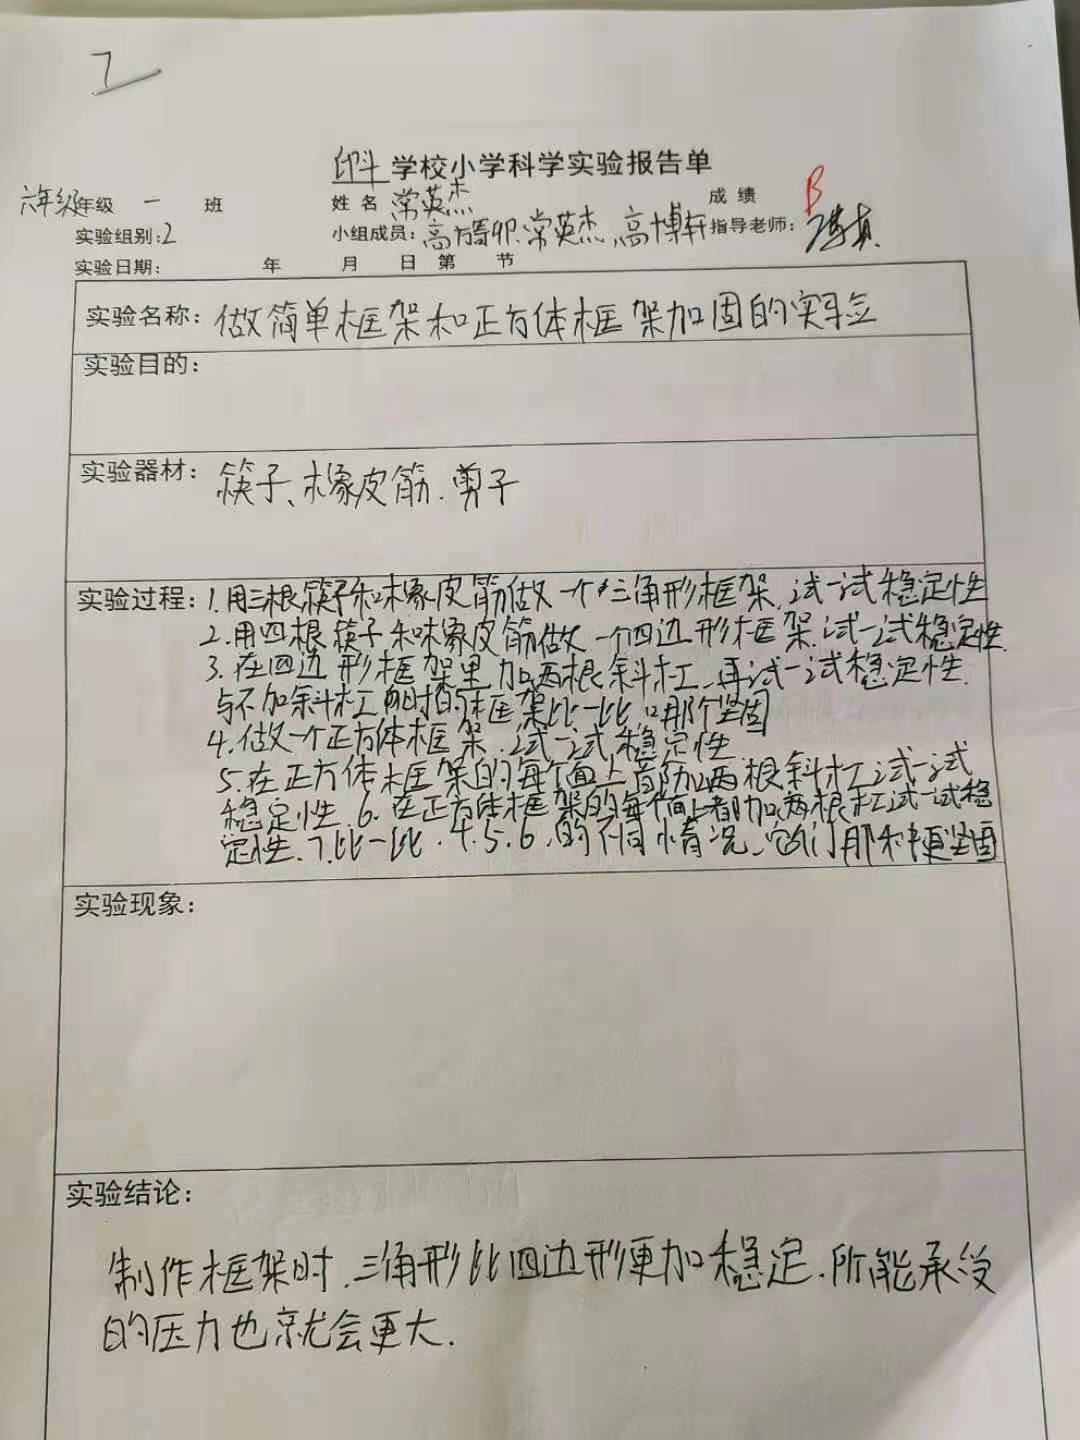 7
印斗学校小学科学实验报告单
六年级年级 一 班 姓名 常英杰 成绩 B
实验组别:2 小组成员:高方奇卯.常英杰,高博轩 指导老师:
实验日期: 年 月 日 第 节
实验名称:做简单框架和正方体框架加固的实验
实验目的:
实验器材:筷子、橡皮筋.剪子
实验过程:1.用三根筷子和橡皮筋做一个三角形框架,试一试稳定性
2.用四根筷子和橡皮筋做一个四边形框架.试一试稳定性.
3.在四边形框架里加两根斜杠,再试一试稳定性.
与不加斜杠时的框架比一比哪个坚固
4.做一个正方体框架.试一试稳定性
5.在正方体框架的每个面上都加两根斜杠试一试
稳定性.6.在正方体框架的每个面上都加两根杠试一试稳
定性.7.比一比.4.5.6.的不同情况,它们那种更坚固
实验现象:
实验结论:
制作框架时.三角形比四边形更加稳定.所能承受
的压力也就会更大.